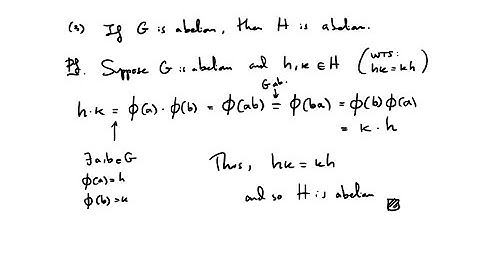 (3) If G is abelian, then H is abelian.
Pf. Suppose G is abelian and h, k ∈ H (WTS: hk = kh)
G ab.
h·k = ϕ(a)·ϕ(b) = ϕ(ab) = ϕ(ba) = ϕ(b)ϕ(a)
= k·h
∃ a,b ∈ G
ϕ(a) = h
ϕ(b) = k
Thus, hk = kh
and so H is abelian